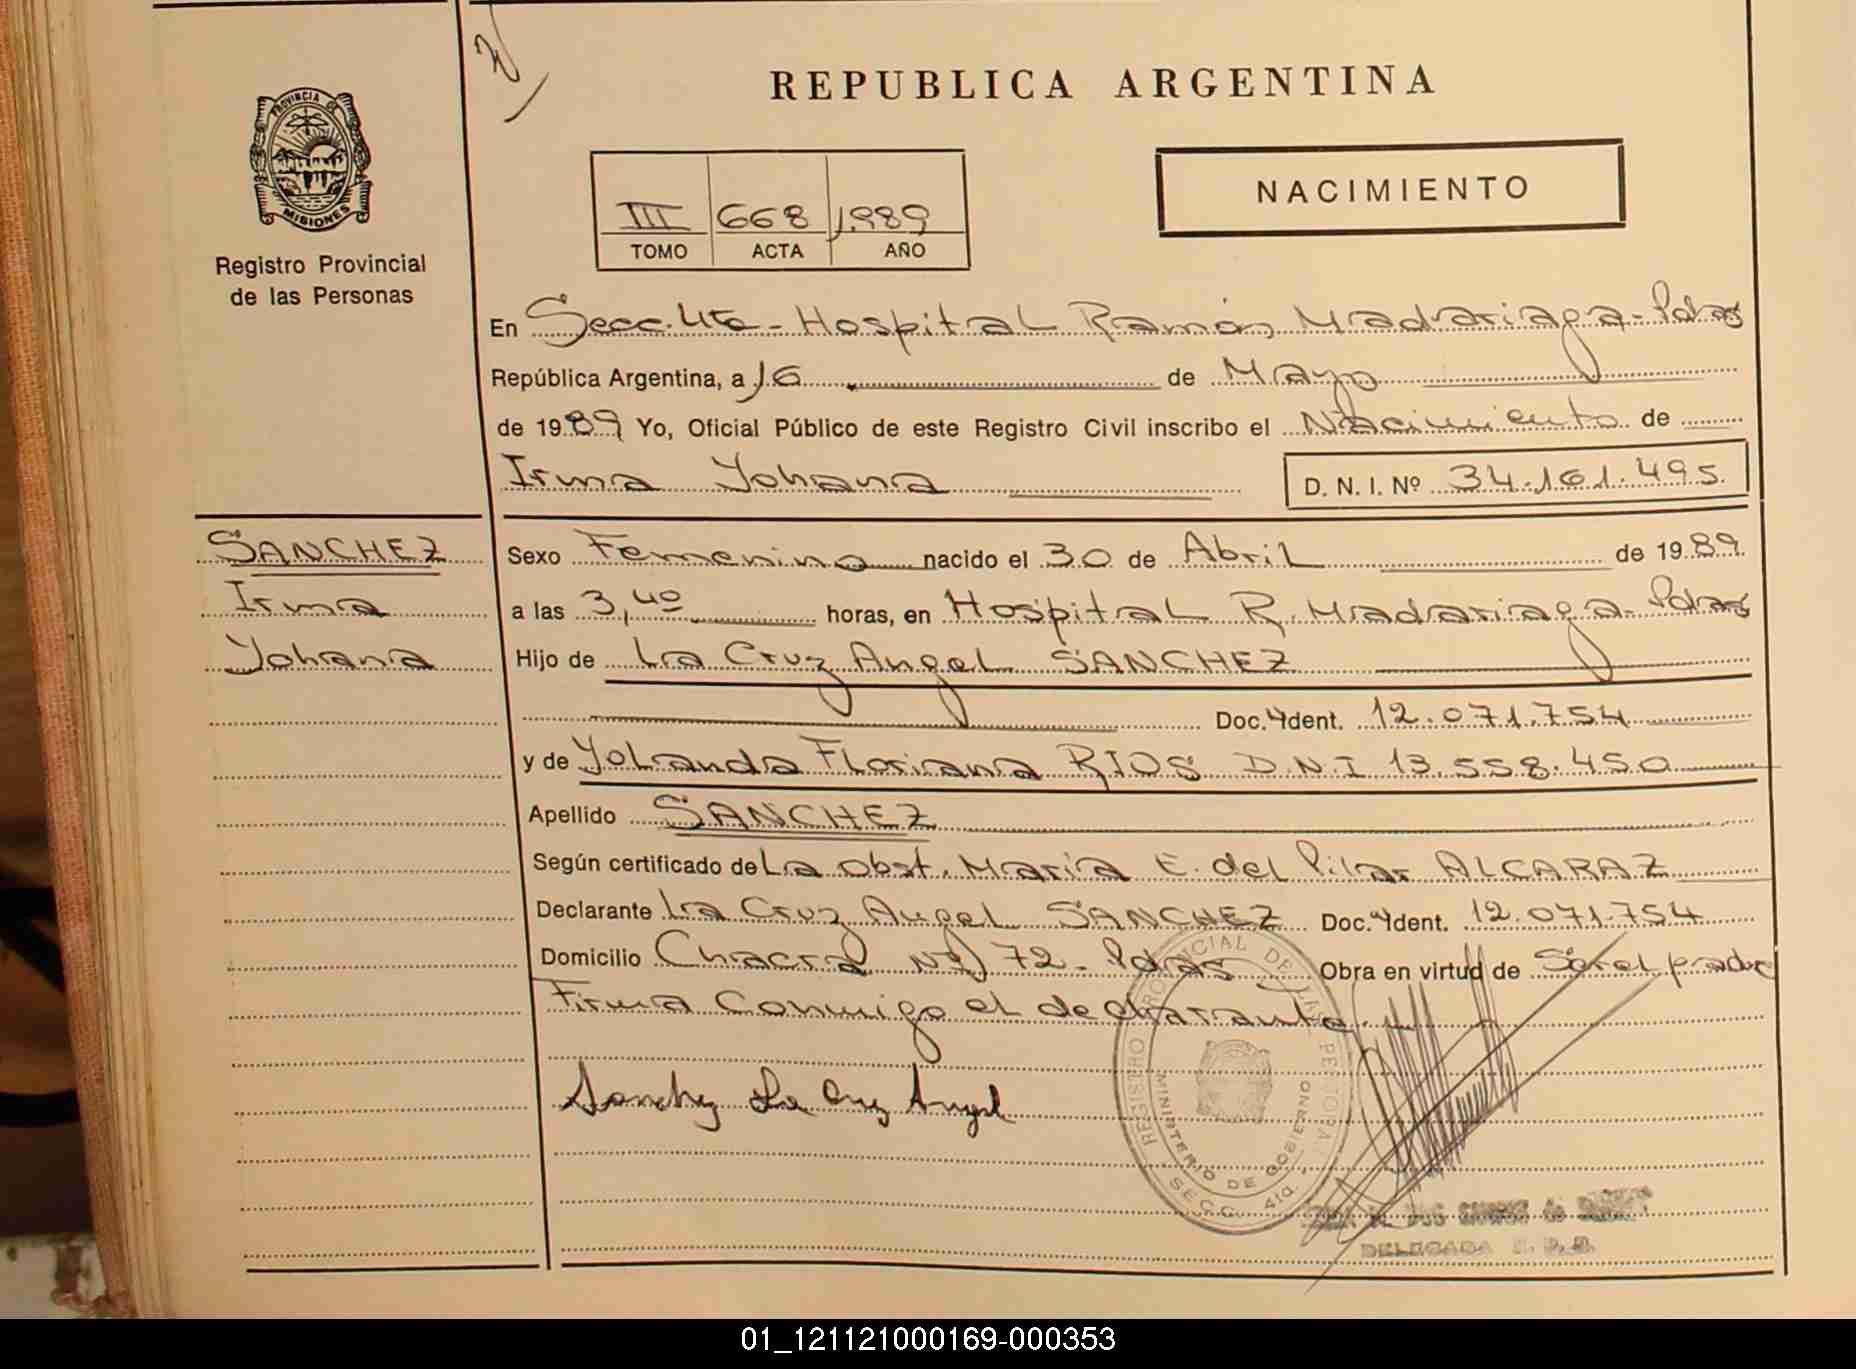 REPUBLICA ARGENTINA
PROVINCIA DE
MISIONES
Registro Provincial
de las Personas
III 668 1.989
TOMO ACTA AÑO
NACIMIENTO
En Secc. 4ta - Hospital Ramón Madariaga - Pdas
República Argentina, a 16 de Mayo
de 1989 Yo, Oficial Público de este Registro Civil inscribo el Nacimiento de
Irma Yohana D. N. I. Nº 34.161.495.
SANCHEZ
Irma
Yohana
Sexo Femenino nacido el 30 de Abril de 1989.
a las 3,40 horas, en Hospital R. Madariaga - Pdas
Hijo de La Cruz Angel SANCHEZ
Doc. Ident. 12.071.754
y de Yolanda Floriana RIOS D.N.I 13.558.450
Apellido SANCHEZ
Según certificado de La obst. Maria E. del Pilar ALCARAZ
Declarante La Cruz Angel SANCHEZ Doc. Ident. 12.071.754
Domicilio Chacra Nº 72 - Pdas Obra en virtud de
Firma Conmigo el declarante.
Sanchez La Cruz Angel
REGISTRO PROVINCIAL DE LAS PERSONAS
MINISTERIO DE GOBIERNO
SECC. 4ta.
DELEGADA
01_121121000169-000353